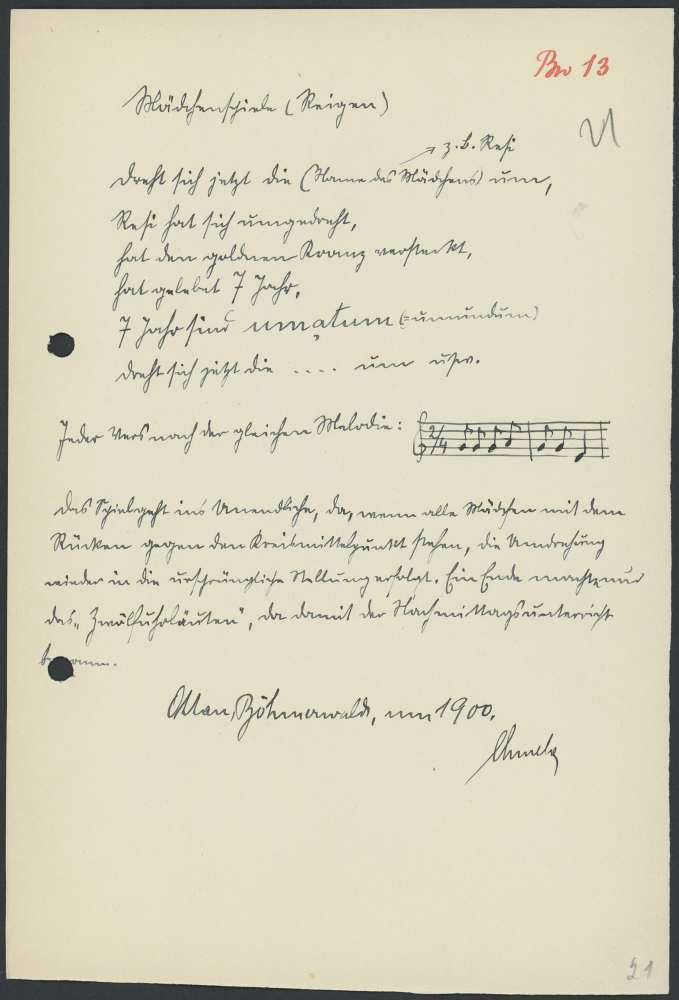 Bw 13
21
Mädchenspiele (Reigen)
z.B. Resi
Dreht sich jetzt die (Name des Mädchens) um,
Resi hat sich umgedreht,
hat den goldnen Kranz versteckt,
hat gelebt 7 Jahr,
7 Jahr sind umatum (=umundum)
dreht sich jetzt die .... um usw.
Jeder Vers nach der gleichen Melodie:
2/4
Das Spiel geht ins Unendliche, da, wenn alle Mädchen mit dem
Rücken gegen den Kreismittelpunkt stehen, die Umdrehung
wieder in die ursprüngliche Stellung erfolgt. Ein Ende machte nur
das „Zwölfuhrläuten", da damit der Nachmittagsunterricht
begann.
Böhmerwald, um 1900.
21